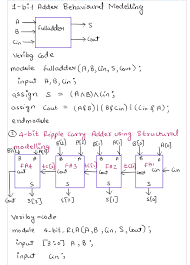 1-bit Adder Behavioural Modelling
A
B
Cin
fulladder
S
Cout
Verilog Code
module fulladder (A, B, Cin, S, Cout);
input A, B, Cin;
assign S = (A^B^Cin);
assign Cout = (A&B)|(B&Cin)|(Cin&A);
endmodule
4-bit Ripple Carry Adder using Structural modelling
FA4
FA3
FA2
FA1
Cout
Cin
S[3]
S[2]
S[1]
S[0]
Verilog code
module 4-bit_RCA (A, B, Cin, S, Cout);
input [3:0] A, B;
input Cin;